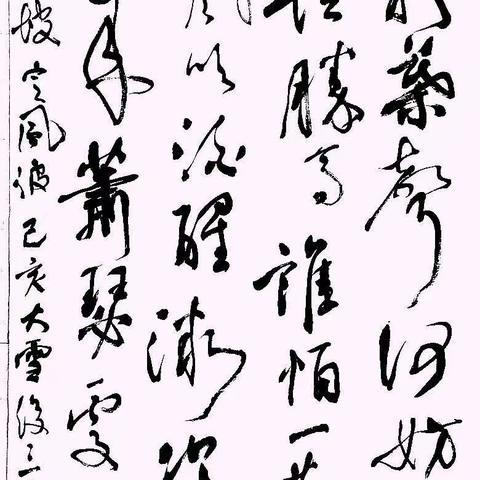 葉聲何妨
勝馬誰怕一
風吹酒醒微冷
來蕭瑟處
坡定風波己亥大雪後三